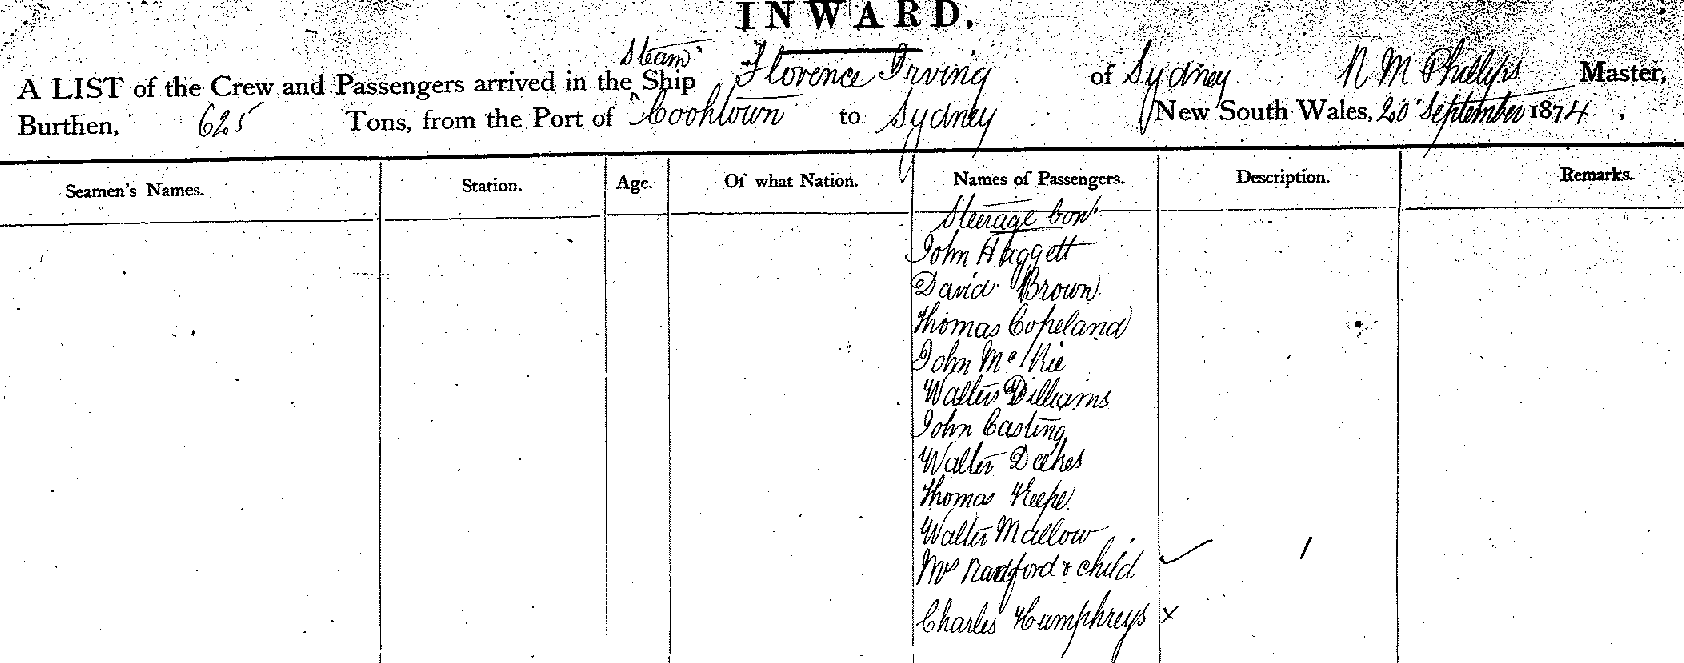 INWARD.
Steam
A LIST of the Crew and Passengers arrived in the Ship Florence Irving of Sydney R M Phillips Master,
Burthen, 625 Tons, from the Port of Cooktown to Sydney New South Wales, 20 September 1874.
Seamen's Names. Station. Age. Of what Nation. Names of Passengers. Description. Remarks.
Steerage Con
John Haggett
David Brown
Thomas Copeland
John Mc Rie
Walter Williams
John Casting
Walter Deekes
Thomas Keepe
Walter Mallow
Mrs Radford & child ✓ 1
Charles Humphreys x